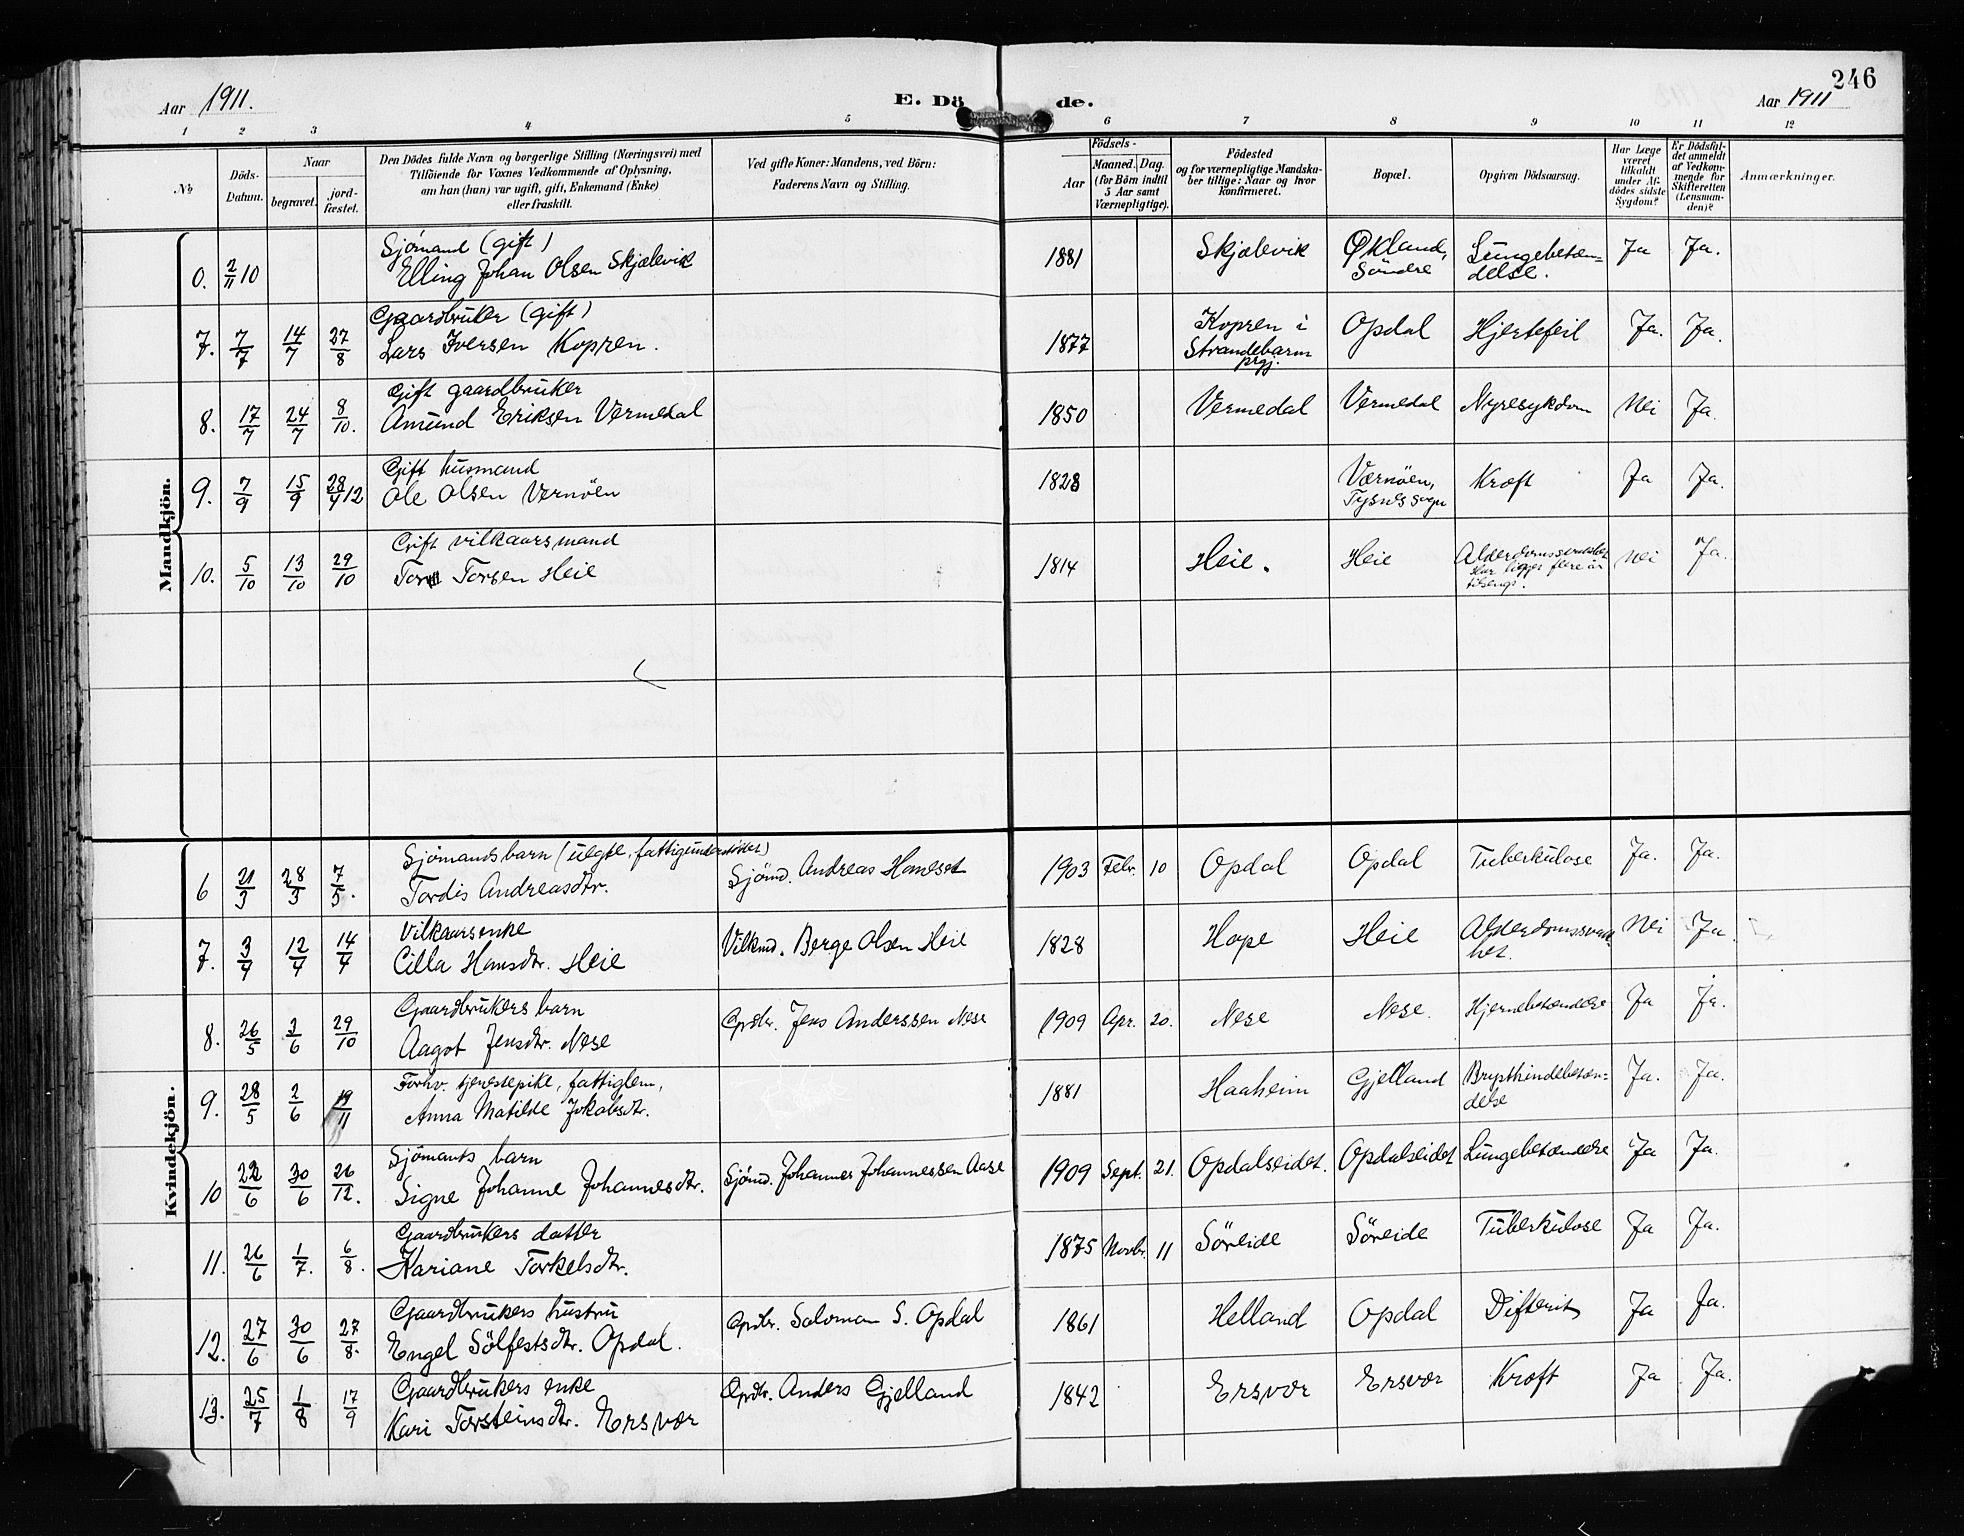 246
Aar 1911.
E. Dö de.
Aar 1911
1 2 3 4 5 6 7 8 9 10 11 12
No
Döds-
Datum.
Naar
begravet.
jord-
fæstet.
Den Dödes fulde Navn og borgerlige Stilling (Næringsvei) med
Tilföiende for Voxnes Vedkommende af Oplysning,
om han (hun) var ugift, gift, Enkemand (Enke)
eller fraskilt.
Ved gifte Koner: Mandens, ved Börn:
Faderens Navn og Stilling.
Födsels-
Aar
Maaned.
Dag.
(for Börn indtil
5 Aar samt
Værnepligtige).
Födested
og for værnepligtige Mandska-
ber tillige: Naar og hvor
konfirmeret.
Bopæl.
Opgiven Dödsaarsag.
Har Læge
været
tilkaldt
under Af-
dödes sidste
Sygdom?
Er Dödsfal-
det anmeldt
af Vedkom-
mende for
Skifteretten
(Lensman-
den)?
Anmærkninger.
Mandkjön.
Sjömand (gift)
0. 2/11 10 Elling Johan Olsen Skjælevik 1881 Skjælevik Økland, Söndre Lungebetæn-
delse. Ja Ja.
Gaardbruker (gift)
7. 7/7 14/7 27/8 Lars Iversen Kopren. 1877 Kopren i
Strandebarm
prgj. Opdal Hjertefeil Ja. Ja.
Gift gaardbruker
8. 17/7 24/7 8/10. Amund Eriksen Vermedal 1850 Vermedal Vermedal Nyresykdom Nei Ja.
Gift husmand
9. 7/9 15/9 28/4 12 Ole Olsen Vernöen 1828 Værnöen,
Tysnes sogn Kræft Ja Ja.
Gift vilkaarsmand
10. 5/10 13/10 29/10 Torsen Heie 1814 Heie. Heie Nei Ja.
Har ligget flere år
tilsengs.
Kvindekjön.
Sjömands barn (uegte, fattigunderstöttet)
6 21/3 28/3 7/5. Tordis Andreasdtr. Sjömd. Andreas 1903 Febr. 10 Opdal Opdal Tuberkulose Ja. Ja.
Vilkaarsenke
7. 3/4 12/4 14/4 Cilla Hansdtr. Heie Vilkmd. Berge Olsen Heie 1828 Hope Heie Alderdomssvak
het. Nei Ja.
Gaardbrukers barn
8. 26/5 3/6 29/10 Aagot Jensdtr. Nese Grdbr. Jens Anderssen Nese 1909 Apr. 20. Nese Nese. Hjernebetændelse Ja Ja.
Forhv. tjenestepike, fattiglem,
9. 28/5 2/6 19/11 Anna Matilde Jakobsdtr. 1881 Haaheim Gjelland Brysthindebetæn-
delse Ja. Ja.
Sjömands barn
10 22/6 30/6 26/12. Signe Johanne Johannesdtr. Sjömd. Johannes Johannessen Aase 1909 Sept. 21. Opdalseidet. Opdalseidet Lungebetændelse Ja Ja.
Gaardbrukers datter
11. 26/6 1/7. 6/8. Mariane Torkelsdtr. 1875 Novbr. 11 Söreide Söreide Tuberkulose Ja Ja.
Gaardbrukers hustru
12. 27/6 30/6 27/8. Engel Sölfestsdtr. Opdal. Grdbr. Salomon S. Opdal 1861 Helland Opdal Difterit Ja Ja.
Gaardbrukers enke
13. 25/7 1/8 17/9 Kari Torsteinsdtr. Ersvær Grdbr. Anders Gjelland 1842 Ersvær Ersvær Kræft Ja Ja.